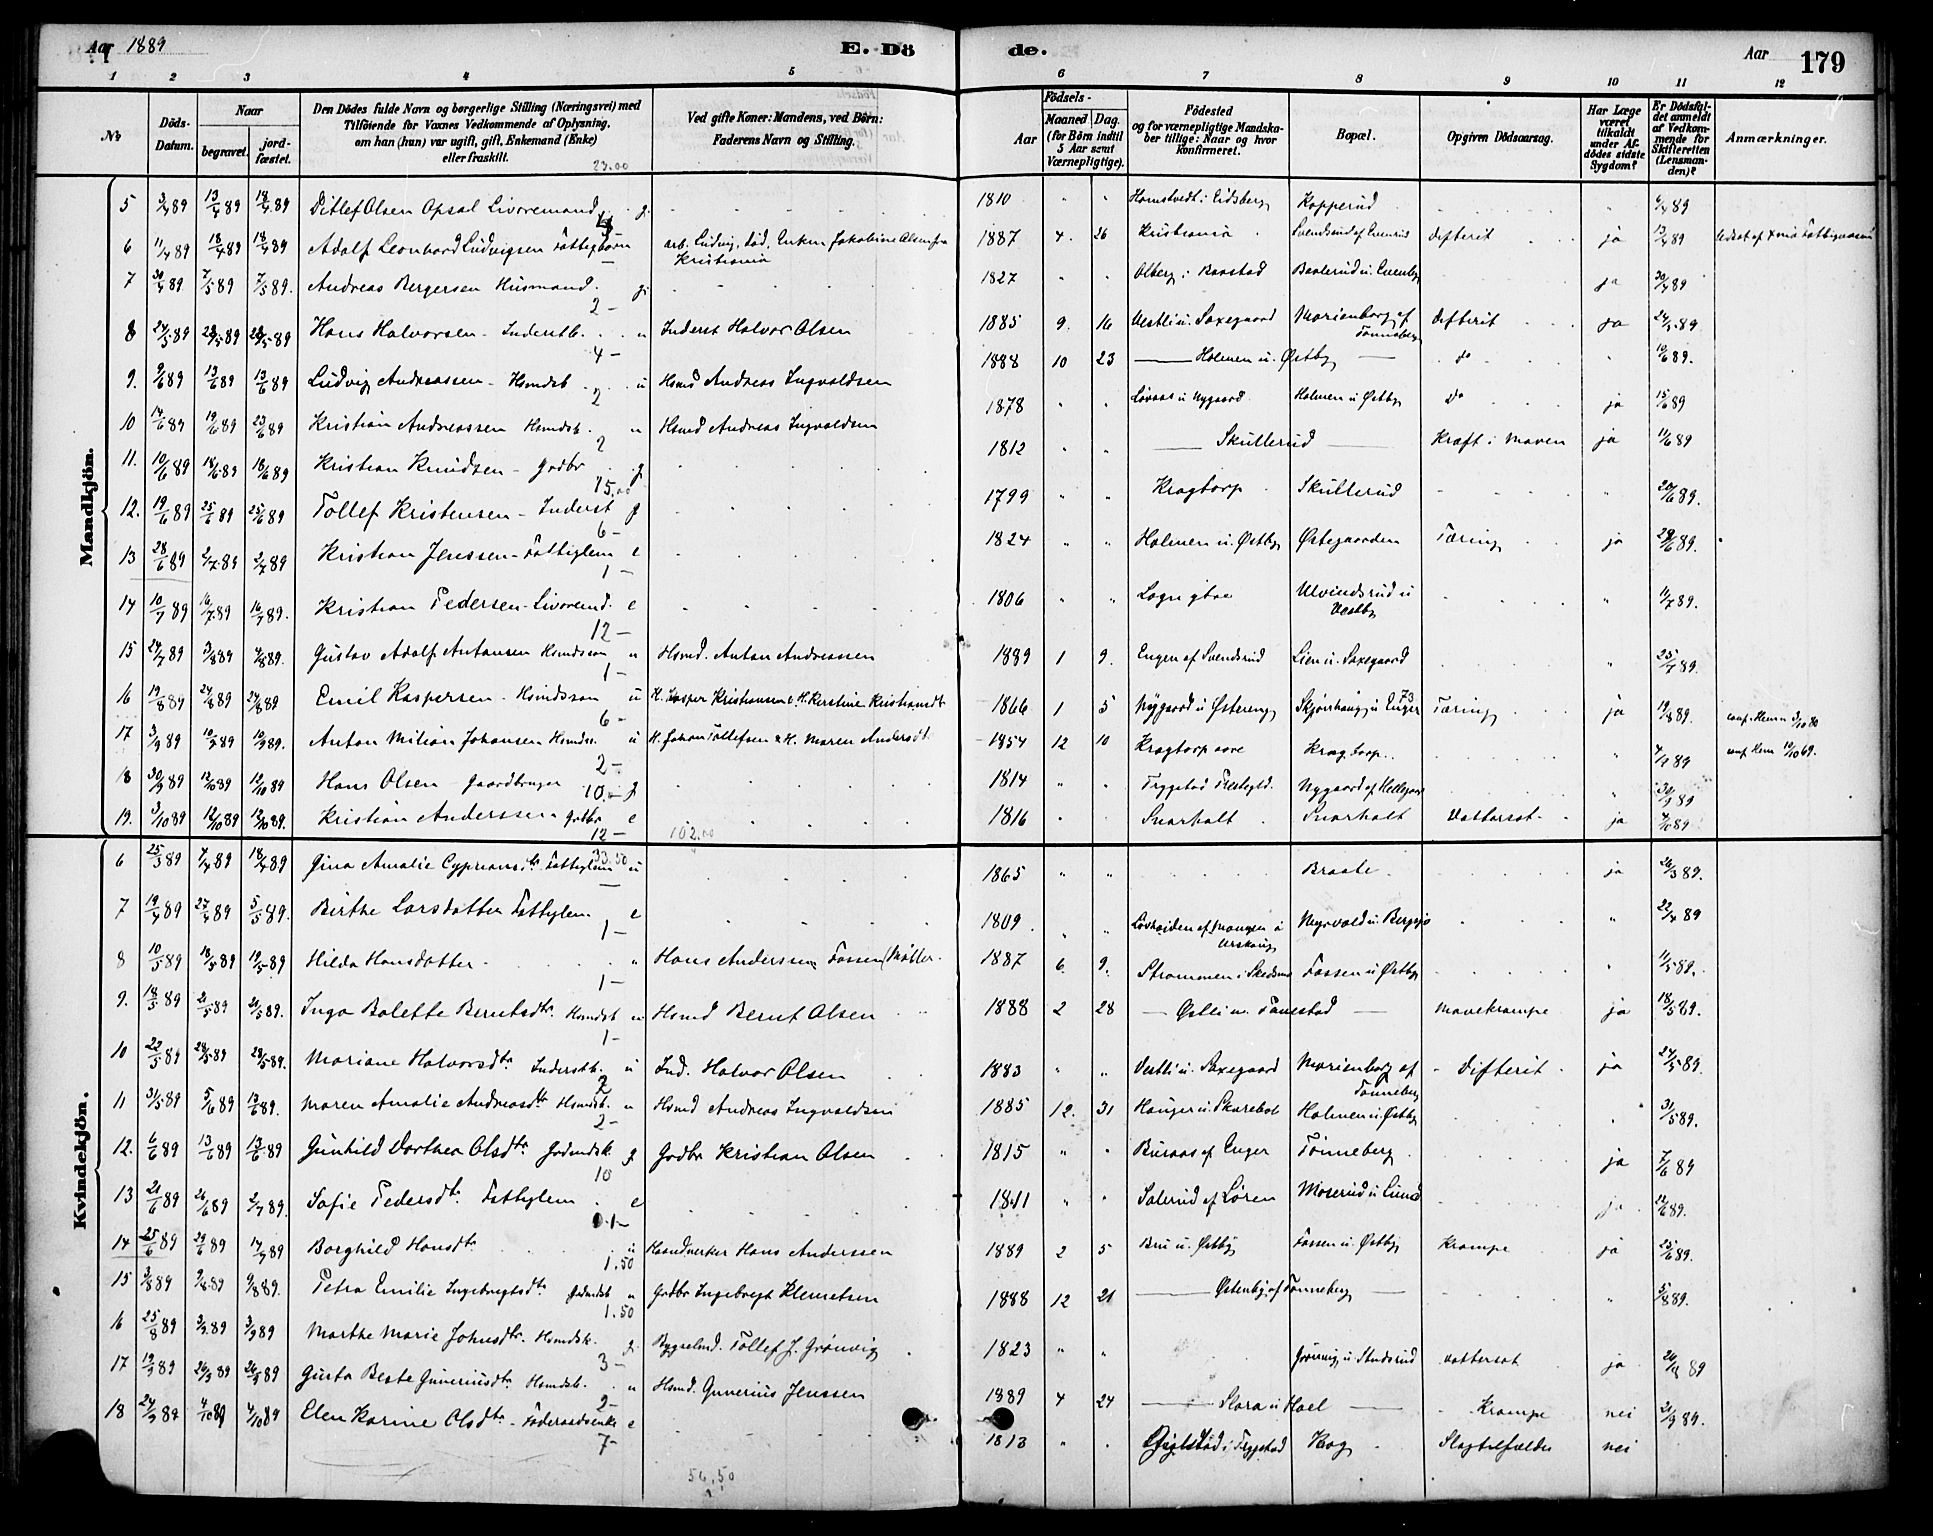 Aar 1889 E. Dö de. Aar 179
1 2 3 4 5 6 7 8 9 10 11 12
No
Döds-Datum.
Naar begravet. jordfæstet.
Den Dödes fulde Navn og borgerlige Stilling (Næringsvei) med Tilföiende for Voxnes Vedkommende af Oplysning, om han (hun) var ugift, gift, Enkemand (Enke) eller fraskilt.
Ved gifte Koner: Mandens, ved Börn: Faderens Navn og Stilling.
Födsels-
Aar Maaned Dag. (for Börn indtil 5 Aar samt Værnepligtige).
Födested og for værnepligtige Mandskaber tillige: Naar og hvor konfirmeret.
Bopæl.
Opgiven Dödsaarsag.
Har Læge været tilkaldt under Afdödes sidste Sygdom?
Er Dödsfaldet anmeldt af Vedkommende for Skifteretten (Lensmanden)?
Anmærkninger.
23.00
Mandkjön.
5 3/4 89 13/4 89 18/4 89 Ditlef Olsen Opsal Livøremand g. 1810 " " Homstvedt i Eidsberg Kopperud 6/4 89
6 11/4 89 18/4 89 18/4 89 Adolf Leonhard Ludvigsen Fattigbarn arb. Ludvig, død, Enken Jakobine Olsen fra Kristiania 1887 4. 26 Kristiania Svendsrud af Evenrud difterit ja 13/4 89
7 30/4 89 7/5 89 7/5 89. Andreas Bergersen Husmand. g. 2- 1827 " " Olberg i Baastad Baalerud u. Evenby ja 30/4 89
8 24/5 89 28/5 89 28/5 89 Hans Halvorsen - Inderstb. " 4- Inderst Halvor Olsen 1885 9. 16 Vestli u. Saxegaard Marienborg af Tønneberg difterit ja 24/5 89
9. 9/6 89 13/6 89 13/6 89 Ludvig Andreassen - Hsmdsb. u 2 Hsmd Andreas Ingvaldsen 1888 10 23 Holmen u. Østby do 10/6 89.
10 14/6 89 19/6 89 23/6 89 Kristian Andreassen Hsmdsb. u 2 Hsmd Andreas Ingvaldsen 1878 " " Løvaas u Nygaard Holmen u Østby Do ja 15/6 89
11. 10/6 89 18/6 89 18/6 89 Kristian Knudsen - Gdbr g 15.00 1812 " " Skullerud Kræft i Maven ja 11/6 89
12. 19/6 89 25/6 89 25/6 89 Tollef Kristensen - Inderst g 6- 1799 " " Kragtorp Skullerud " 20/6 89.
13 28/6 89 2/7 89 2/7 89 Kristian Jenssen - Fattiglem e 1- 1824 " " Holmen u. Østby Østegaarden Tæring ja 29/6 89.
14 10/7 89 16/7 89 16/7 89. Kristian Pedersen - Livøremd. e 12- 1806 " Ulvindsrud u Vestby " 11/7 89.
15 24/7 89 3/8 89 4/8 89. Gustav Adolf Antonsen Hsmdssøn u 1- Hsmd. Anton Andreassen 1889 1 9. Engen af Svendsrud Lien u. Saxegaard " 25/7 89.
16 19/8 89 24/8 89 24/8 89 Emil Kaspersen - Hsmdssøn u 6- H. Kasper Kristiansen & H. Kerstine Kristiansdt 1866 1 5 Nygaard u Østereng Skjønhaug u Enger 73 Tæring ja 19/8 89. conf. Hemn 3/10 80
17 3/9 89 10/9 89 10/9 89. Anton Milian Johansen Hsmdss. u 2- H. Johan Tollefsen & H. Maren Andersdt. 1854 12 10 Kragtorp øvre Kragtorp " 4/9 89 conf. Hem 10/10 69.
18 30/9 89 12/10 89 12/10 89 Hans Olsen - Gaardbruger 10.- g 1814 " " Trygstad Præstegld. Nygaard af Hellegaard " 30/9 89
19. 3/10 89 12/10 89 12/10 89. Kristian Anderssen Gdbr e 12- 102.00 1816 " Snarholt Snarholt Vattersot ja 4/10 89
Kvindekjön.
33.50
6 25/3 89 7/4 89 18/4 89 Gina Amalie Cypriansdtr Fattiglem u 1865 " " Braate ja 26/3 89.
7 19/4 89 27/4 89 5/5 89. Birthe Larsdatter Fattiglem e 1- 1809 " " Løvheiden af Mangen i Urskoug Myrvold u. Bergsjø " 22/4 89
8 10/5 89 18/5 89 19/5 89 Hilda Hansdatter " 1- Hans Anderssen Fossen (Møller. 1887 6. 9. Strømmen i Skedsmo Fossen u Østby " 11/5 89.
9. 18/5 89 21/5 89 21/5 89. Inga Bolette Berntsdtr. Hsmdsb u 1- Hsmd Bernt Olsen 1888 2 28 Østli u. Tanestad Mavekrampe ja 18/5 89.
10 22/5 89 28/5 89 28/5 89. Mariane Halvorsdtr Inderstb. u 2 Ind. Halvor Olsen 1883 " " Vestli u. Saxegaard Marienborg af Tønneberg Difterit ja 24/5 89.
11 31/5 89 5/6 89 13/6 89. Maren Amalie Andreasdtr Hsmdsb. u 2- Hsmd Andreas Ingvaldsen 1885 12. 31 Hauger u. Skarebøl Holmen u. Østby 31/5 89.
12. 6/6 89 13/6 89 13/6 89 Gunhild Dorthea Olsdtr. Gdmdsk. g 10 Gdbr Kristian Olsen 1815 " " Buraas af Enger Tønneberg ja 7/6 89
13 21/6 89 26/6 89 2/7 89. Sofie Pedersdtr. Fattiglem e 1- 1811 " " Solerud af Løren Moserud u Lund ja 22/6 89.
14 25/6 89 29/6 89 14/7 89 Borghild Hansdtr u 1.50 Haandverker Hans Anderssen 1889 2 5 Bru u. Østby Fossen u. Østby Krampe ja 25/6 89.
15 3/8 89 9/8 89 9/8 89. Petra Emilie Ingebregtsdtr Gdmdsb u 1.50 Gdbr Ingebregt Klemetsen 1888 12 21 Østenby af Tønneberg " 5/8 89.
16 25/8 89 3/9 89 3/9 89 Marthe Marie Johnsdtr. Hsmdsk. g. 3- Bygselmd. Tollef J. Grønvig 1823 " " Grønvig u Studsrud Vattersot ja 26/8 89
17 19/9 89 26/9 89 26/9 89 Gusta Beate Gunneriusdtr. Hsmdsb. u 2- Hsmd. Gunerius Jenssen 1889 4 24 Slora u Hoel Krampe nei 21/9 89.
18 24/9 89 4/10 89 4/10 89 Elen Karine Olsdtr - Føderaadsenke e 7- 1813 " " i Trygstad Hog Slagtilfælde nei
56,50